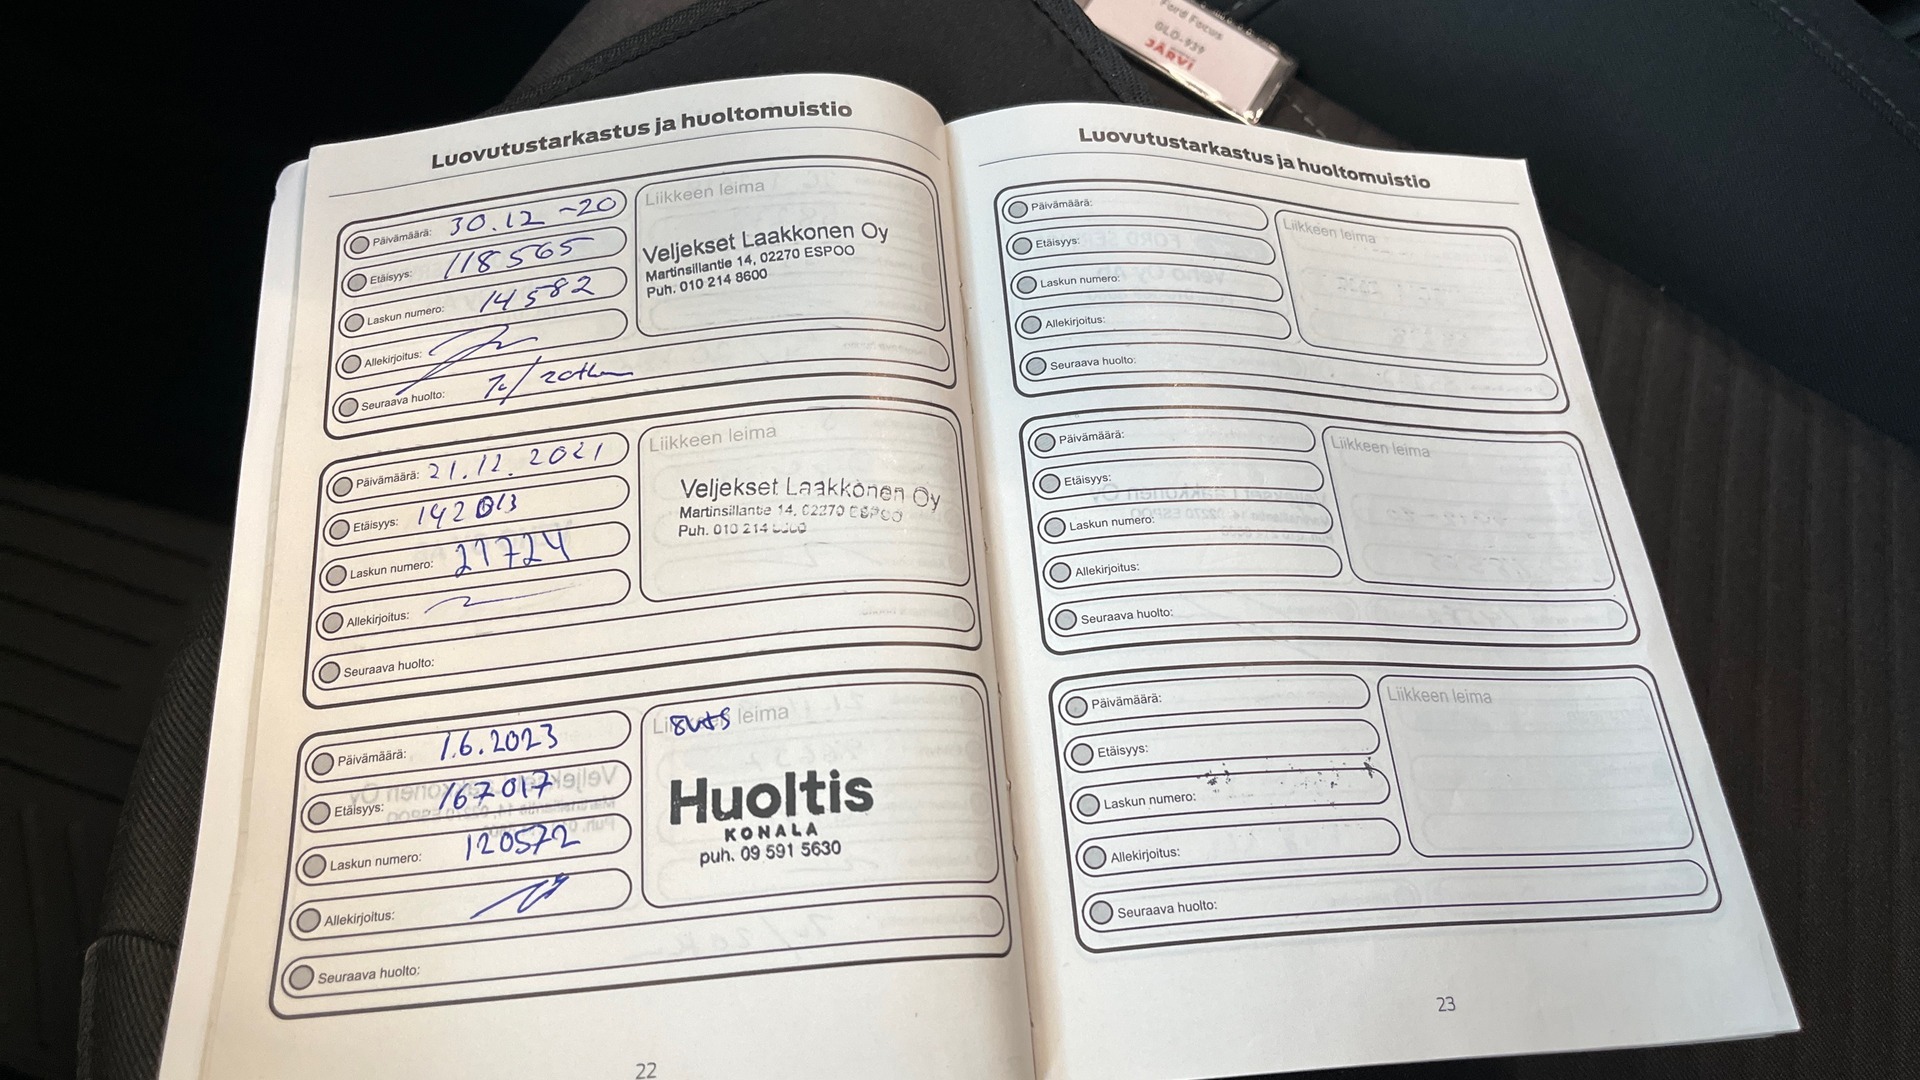 Ford Focus
GLO-939
JÄRVI
Luovutustarkastus ja huoltomuistio
Päivämäärä: 30.12 -20
Etäisyys: 118565
Laskun numero: 14582
Allekirjoitus:
Seuraava huolto:
Liikkeen leima
Veljekset Laakkonen Oy
Martinsillantie 14, 02270 ESPOO
Puh. 010 214 8600
Päivämäärä: 21.12.2021
Etäisyys: 142013
Laskun numero: 21724
Allekirjoitus:
Seuraava huolto:
Liikkeen leima
Veljekset Laakkonen Oy
Martinsillantie 14, 02270 ESPOO
Puh. 010 214
Päivämäärä: 1.6.2023
Etäisyys: 167017
Laskun numero: 120572
Allekirjoitus:
Seuraava huolto:
Liikkeen leima
Huoltis
KONALA
puh. 09 591 5630
22
Luovutustarkastus ja huoltomuistio
Päivämäärä:
Etäisyys:
Laskun numero:
Allekirjoitus:
Seuraava huolto:
Liikkeen leima
Päivämäärä:
Etäisyys:
Laskun numero:
Allekirjoitus:
Seuraava huolto:
Liikkeen leima
Päivämäärä:
Etäisyys:
Laskun numero:
Allekirjoitus:
Seuraava huolto:
Liikkeen leima
23